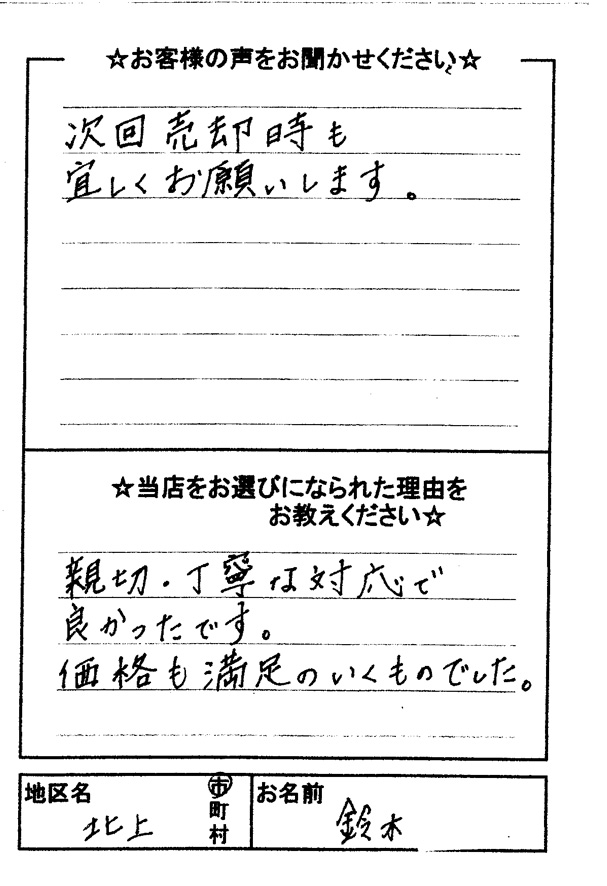 ☆お客様の声をお聞かせください☆
次回売却時も
宜しくお願いします。
☆当店をお選びになられた理由を
お教えください☆
親切・丁寧な対応で
良かったです。
価格も満足のいくものでした。
地区名
北上
市
町
村
お名前
鈴木